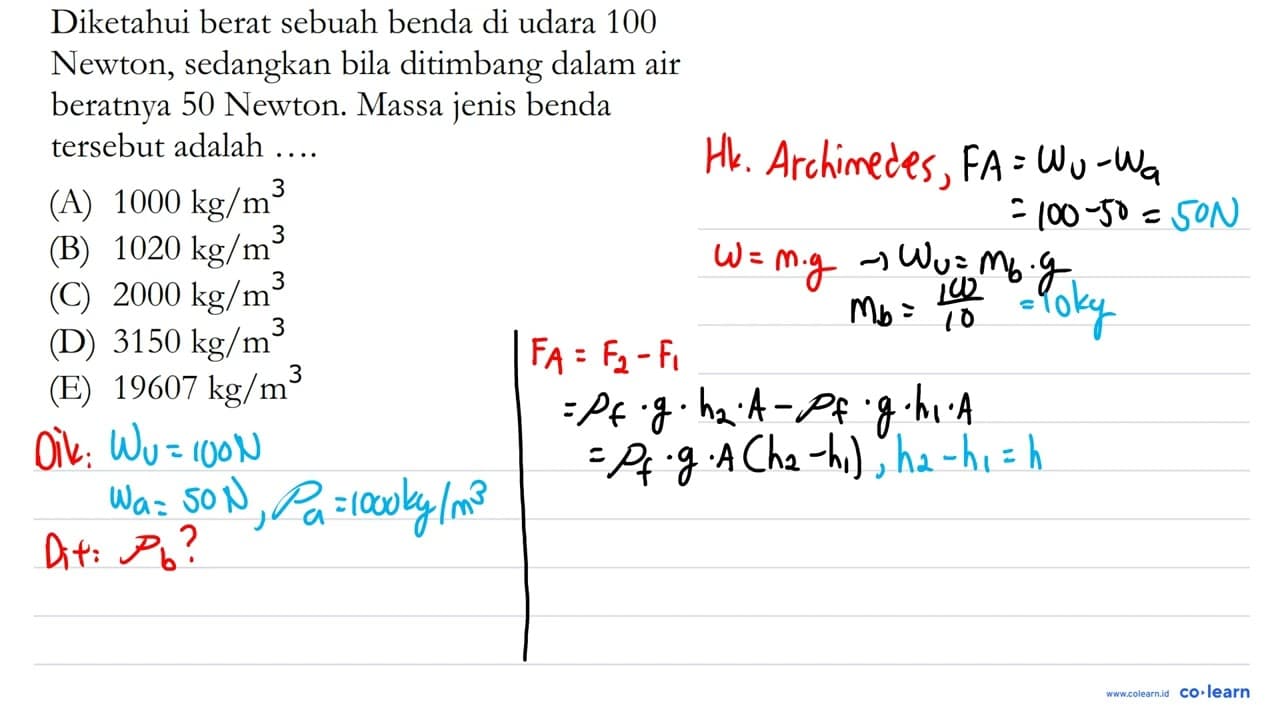 Diketahui berat sebuah benda di udara 100
Newton, sedangkan bila ditimbang dalam air
beratnya 50 Newton. Massa jenis benda
tersebut adalah ....
(A) 1000 kg/m³
(B) 1020 kg/m³
(C) 2000 kg/m³
(D) 3150 kg/m³
(E) 19607 kg/m³
Dik: Wu = 100N
Wa = 50N, ρa = 1000kg/m³
Dit: ρb?
Hk. Archimedes, FA = Wu - Wa
= 100 - 50 = 50N
W = m.g → Wu = mb . g
mb = 100/10 = 10kg
FA = F2 - F1
= ρf . g . h2 . A - ρf . g . h1 . A
= ρf . g . A (h2 - h1), h2 - h1 = h
www.colearn.id co·learn